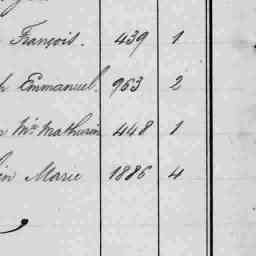 François. 439 1
h Emmanuel. 963 2
n Me Mathurin 448 1
in Marie 1886 4